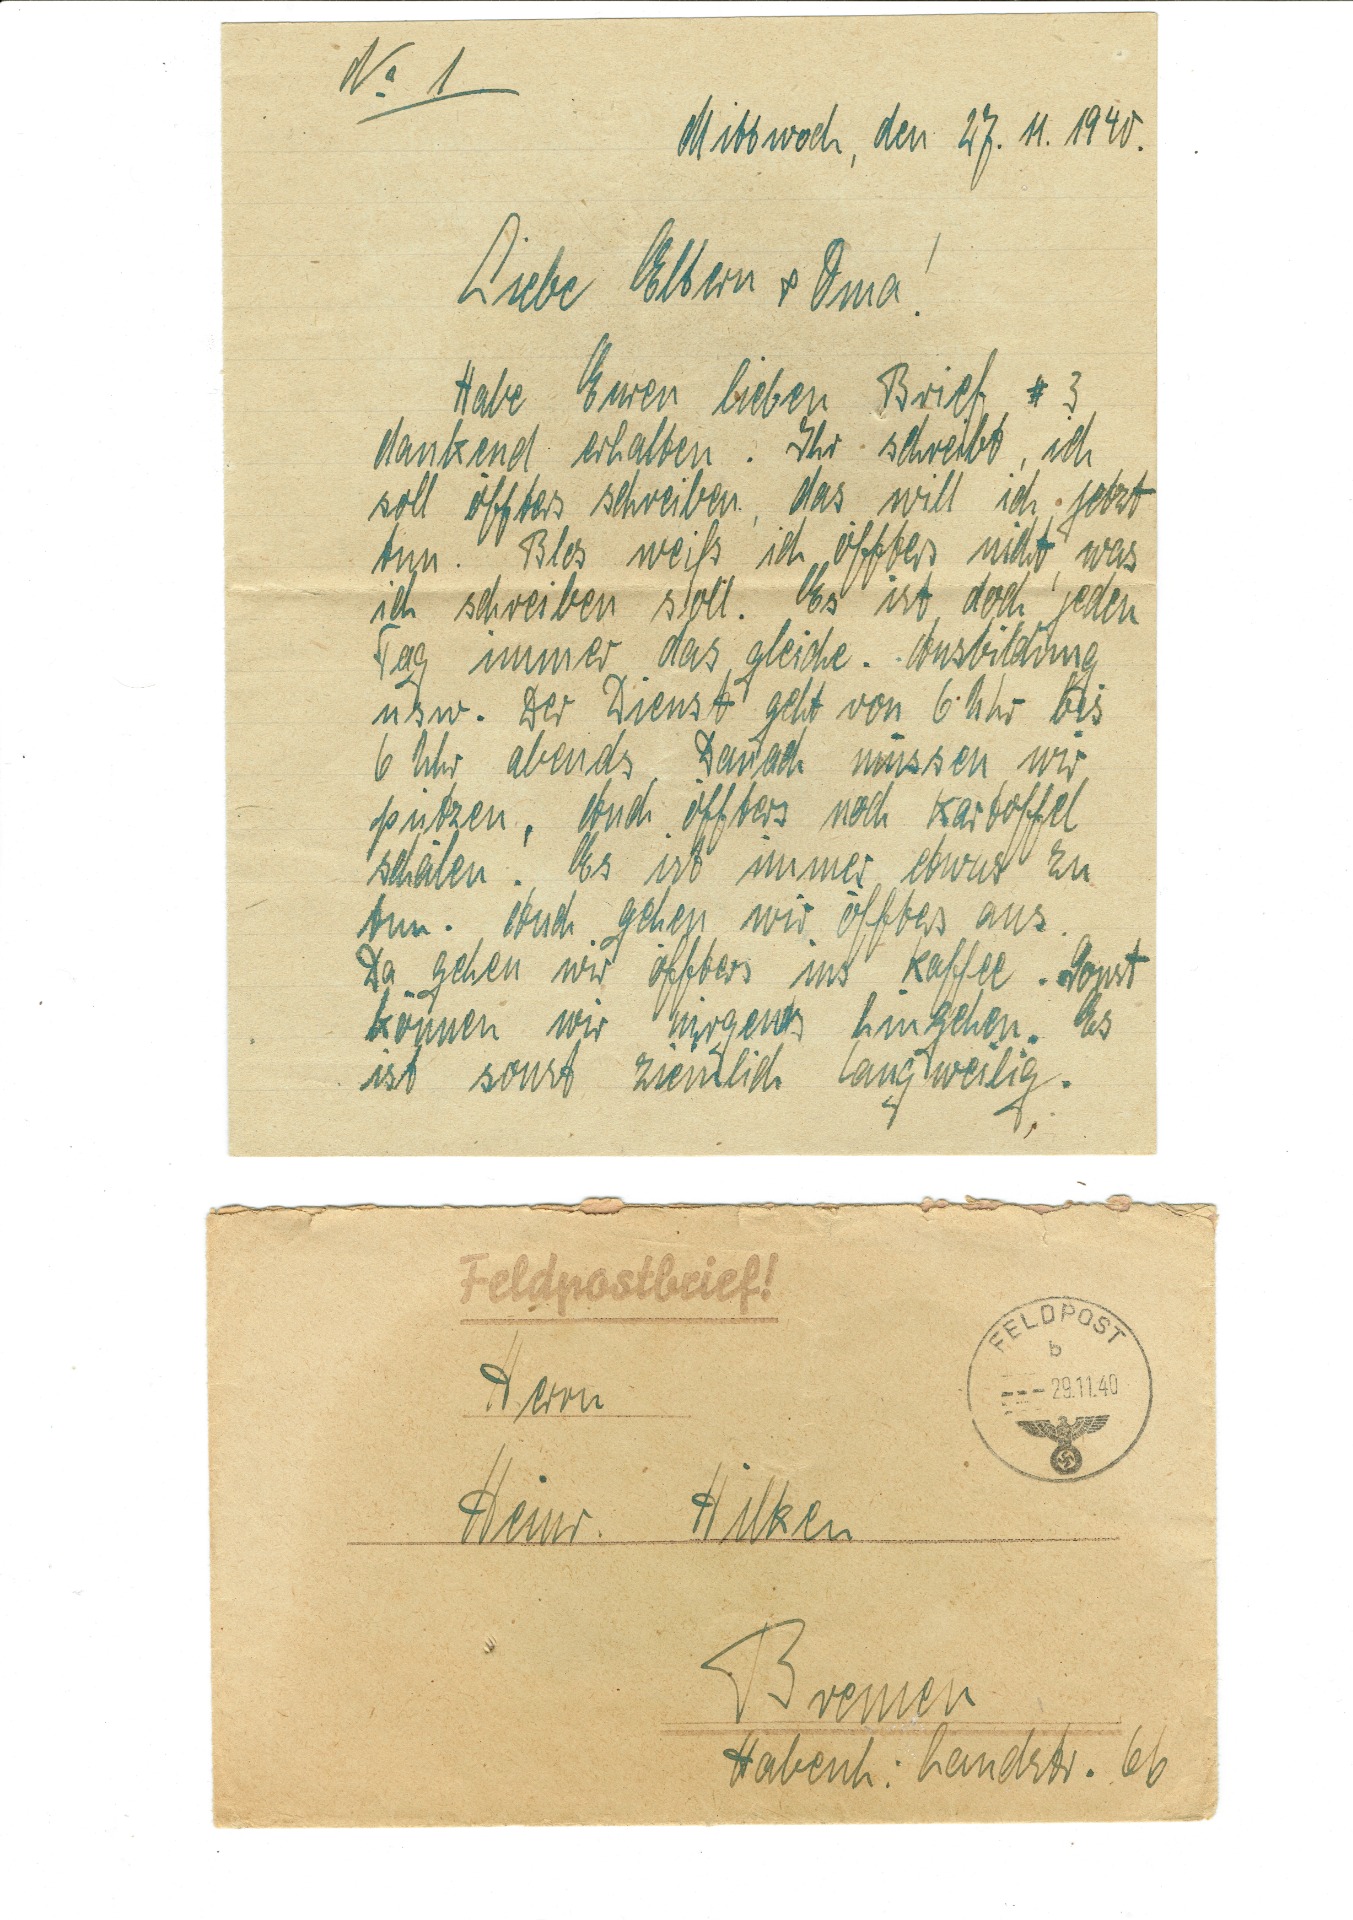 No 1
Mittwoch, den 27. 11. 1940.
Liebe Eltern & Oma!
Habe Euren lieben Brief # 3
dankend erhalten. Ihr schreibt, ich
soll öffters schreiben, das will ich jetzt
tun. Blos weiß ich öffters nicht, was
ich schreiben soll. Es ist doch jeden
Tag immer das gleiche. Ausbildung
usw. Der Dienst geht von 6 Uhr bis
6 Uhr abends. Danach müssen wir
putzen, Auch öffters noch Kartoffel
schälen. Es ist immer etwas zu
tun. Auch gehen wir öffters aus.
Da gehen wir öffters ins Kaffee. Sonst
können wir nirgends hingehen. Es
ist sonst ziemlich langweilig.
Feldpostbrief!
FELDPOST
b
--- 29.11.40
Herrn
Heinr. Hilken
Bremen
Habenh. Landstr. 66